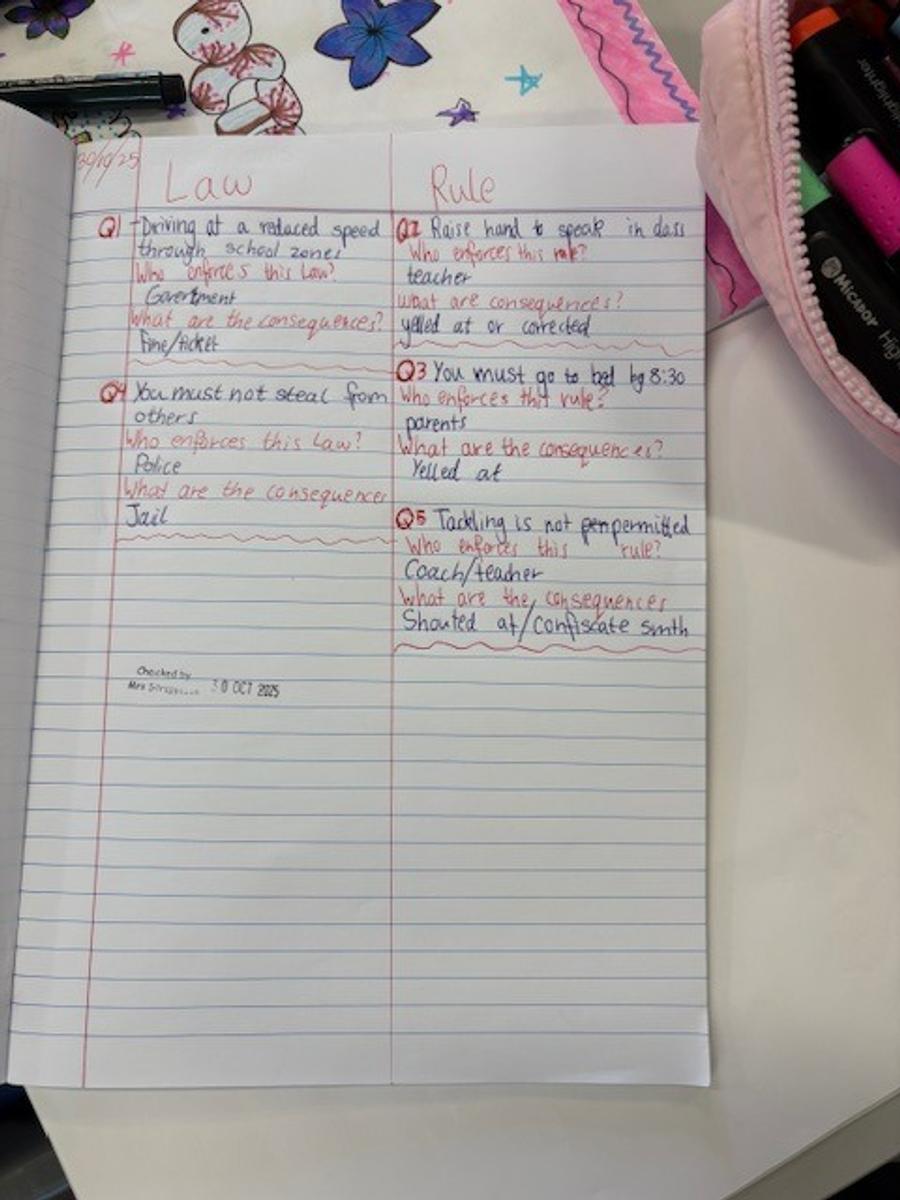 30/10/25
Law
Q1 - Driving at a reduced speed
through school zones
Who enforces this Law?
Govertment
What are the consequences?
Fine/ticket
Q4 You must not steal from
others
Who enforces this Law?
Police
What are the consequences
Jail
Checked by
Mrs 30 OCT 2025
Rule
Q2 Raise hand to speak in class
Who enforces this rule?
teacher
What are consequences?
yelled at or corrected
Q3 You must go to bed by 8:30
Who enforces this rule?
parents
What are the consequences?
Yelled at
Q5 Tackling is not penpermitted
Who enforces this rule?
Coach/teacher
What are the consequences
Shouted at/confiscate smth
Highlighter
MICADOR High